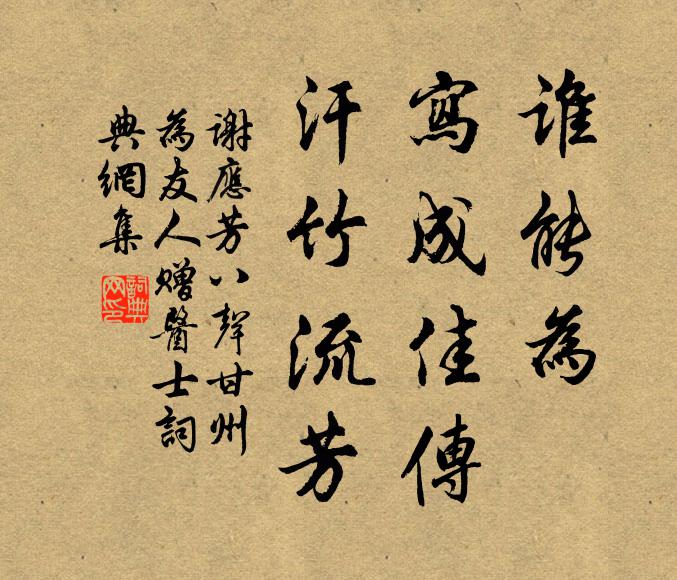 誰能為
寫成佳傳
汗竹流芳
謝應芳八聲甘州
為友人贈醫士詞
典網集
詞典網印